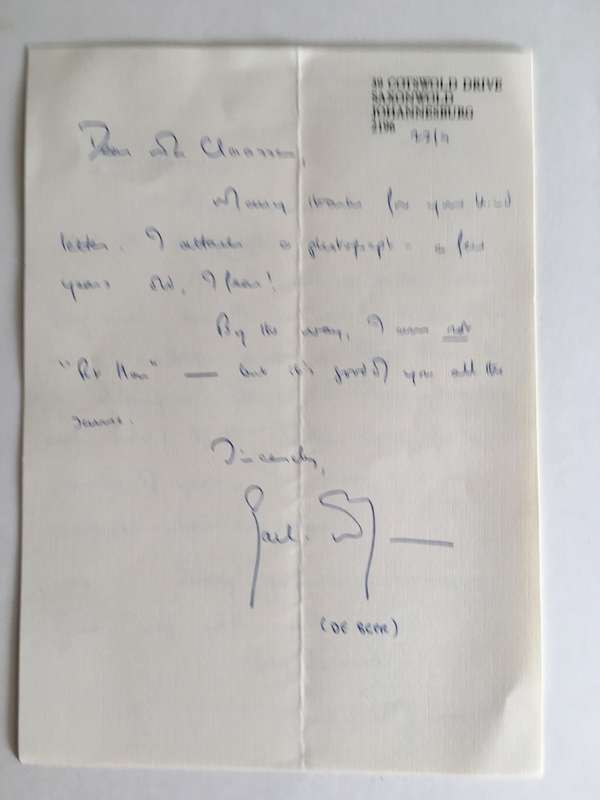 38 COTSWOLD DRIVE
SAXONWOLD
JOHANNESBURG
2196
Dear Mr
Many thanks for your kind
letter. I attach a photograph - a few
years old, I fear!
By the way, I was not
"Rt Hon" — but it's good of you all the
same.
Sincerely,
(DE BEER)